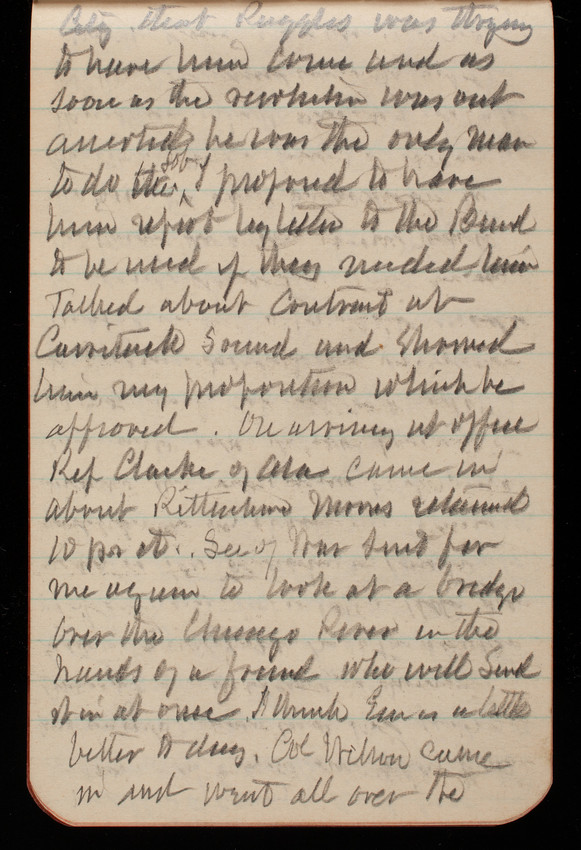 City that Ruggles was trying
to have him come and as
soon as the revolution was out
asserted, he was the only man
to do the job, I proposed to have
him report by letter to the Board
to be used if they needed him
Talked about Contract at
Currituck Sound and Showed
him my proposition which he
approved. On arriving at office
Rep Clarke of Ala came in
about Rittenhouse Moores retained
10 per ct. Sec of War Sent for
me again to look at a bridge
over the Chicago River in the
hands of a friend who will Send
it in at once. I think Em is a little
better to day. Col Wilson came
in and went all over the